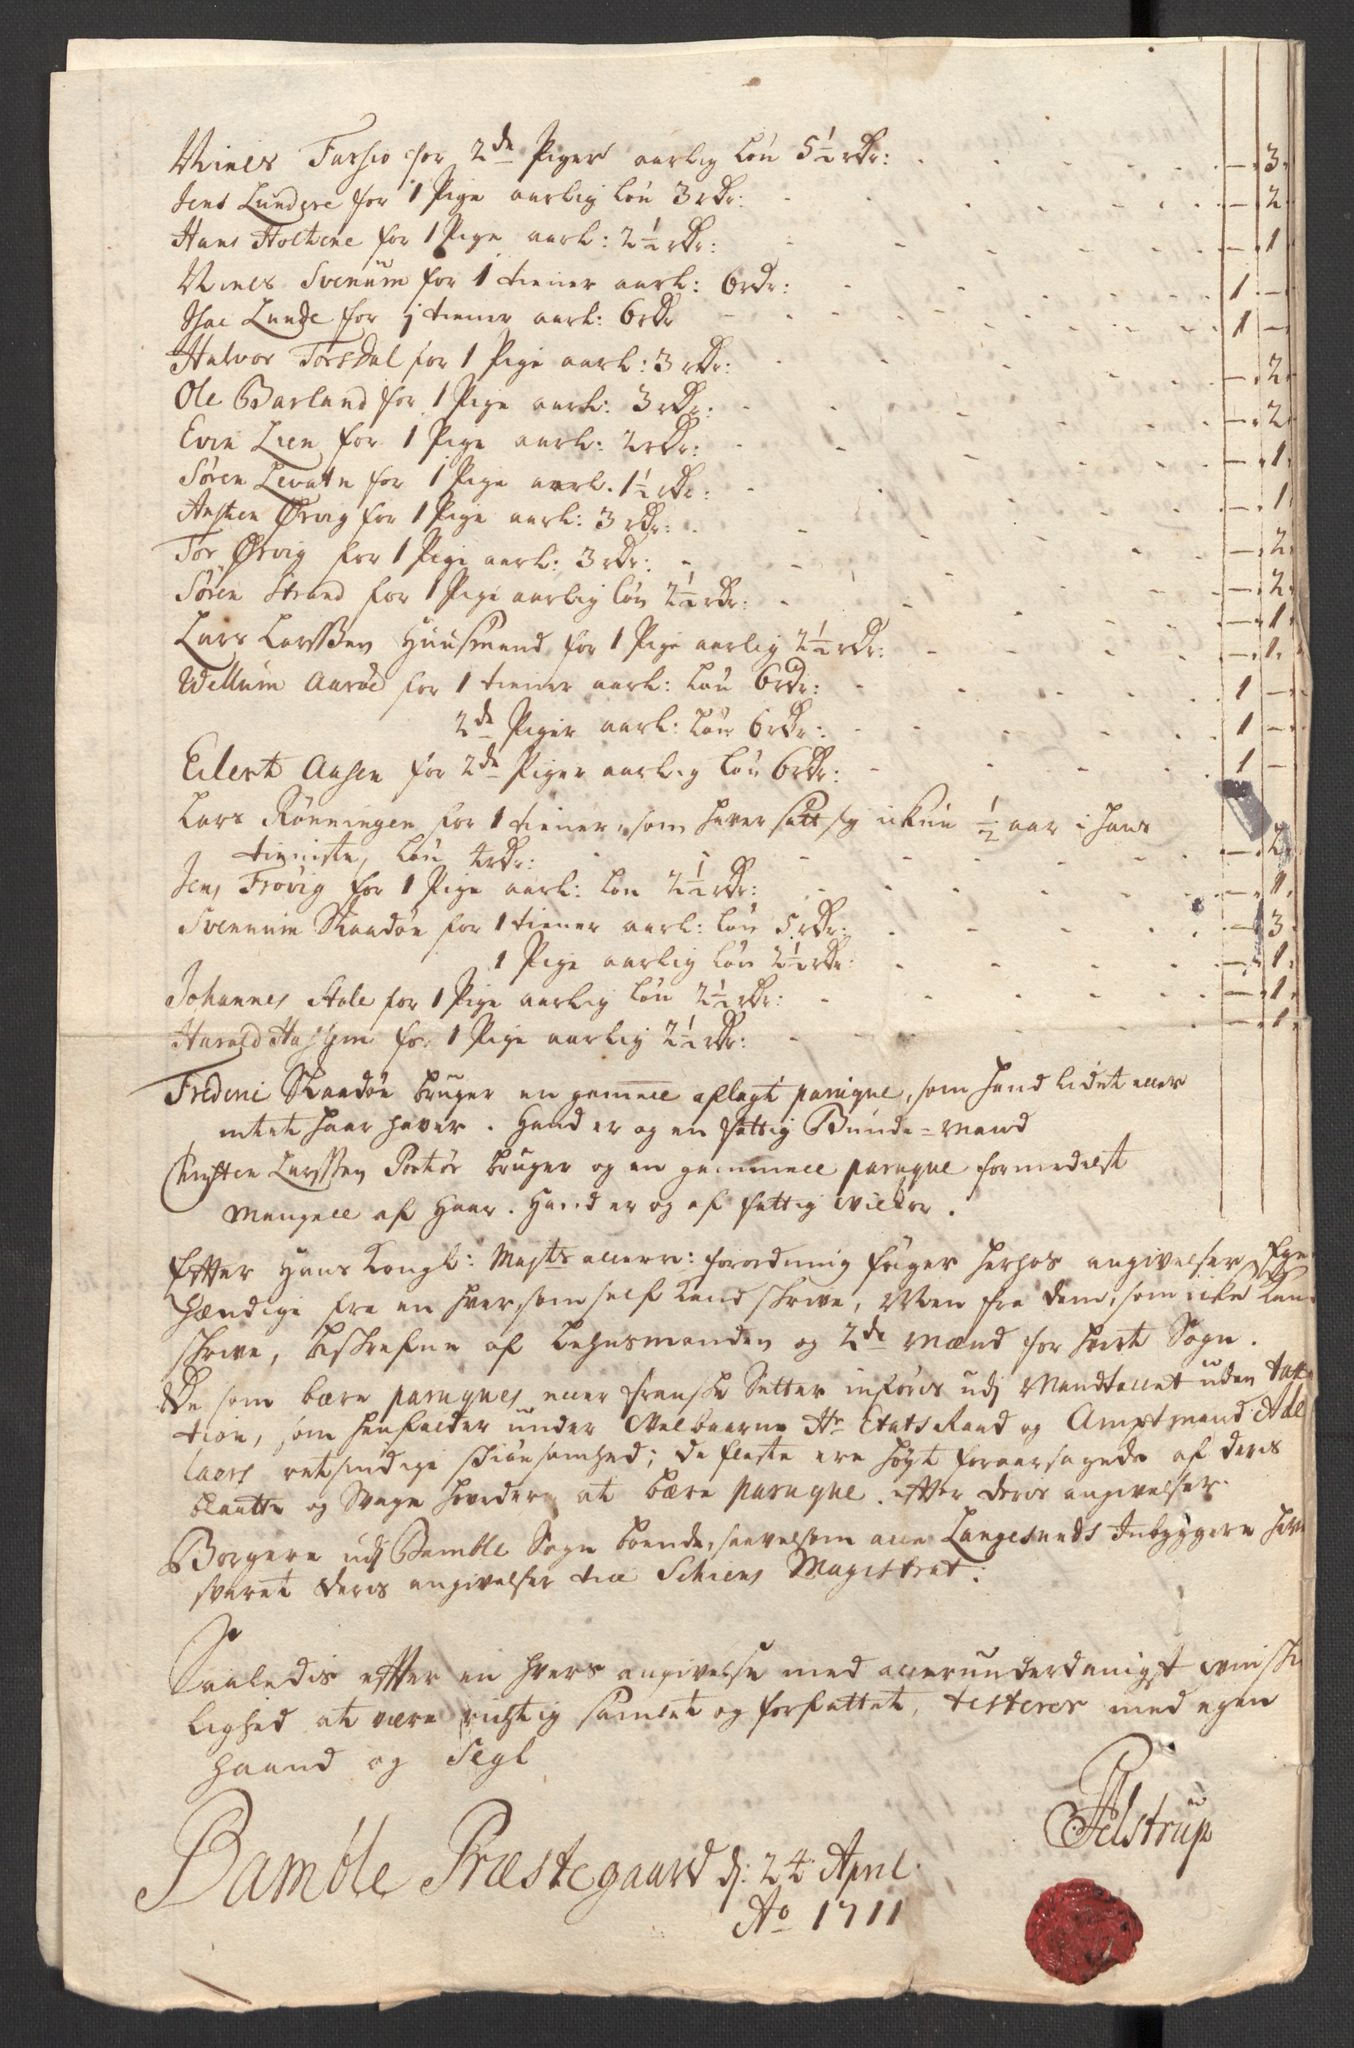 Niels Fassio for 2de Piger aarlig løn 5½ rdr: — 3
Jens Lundere for 1 Pige aarlig løn 3 rdr: — 2
Hans Holtene for 1 Pige aarl: 2½ rdr: — 1
Niels Svenum for 1 tiener aarl: 6 rdr: 1 —
Isac Lunde for 1 tiener aarl: 6 rdr 1 —
Halvor Torsdal for 1 Pige aarl: 3 rdr: — 2
Ole Barland for 1 Pige aarl: 3 rdr: — 2
Even Lien for 1 Pige aarl: 2 rdr: — 1
Sören Levatn for 1 Pige aarl. 1½ rdr: — 1
Austen Ørvig for 1 Pige aarl: 3 rdr: — 2
Tor Ørvig for 1 Pige aarl: 3 rdr: — 2
Sören Strand for 1 Pige aarlig løn 2½ rdr: — 1
Lars Larssen Huusmand for 1 Pige aarlig 2½ rdr: — 1
Wellum Aaröe for 1 tiener aarl: løn 6 rdr: 1 —
2de Piger aarl: løn 6 rdr: 1 —
Eilert Aasen for 2de Piger aarlig løn 6 rdr: 1 —
Lars Rönningen for 1 tiener, som haver satt sig ickun ½ aar i hans
tieniste, løn 4 rdr: — 2
Jens Trövig for 1 Pige aarl: løn 2½ rdr: — 1
Svennum Skaadön for 1 tiener aarl: løn 5 rdr: — 3
1 Pige aarlig løn 2½ rdr: — 1
Johannes Stole for 1 Pige aarlig løn 2½ rdr: — 1
Harald for 1 Pige aarlig 2½ rdr: — 1
Frederic Skaadön bruger en gammel aflagt paruque, som hand lidet eller
intet haar haver. Hand er og en fattig Bunde-mand
Christen Larssen Portör bruger og en gammel paruque formedelst
mangel af haar. Hand er og af fattig vilkor.
Efter Hans Kongl: Majts allern: forordning fölger herhos angivelser Egen-
hændige fra en hver, som self kand skrive, Men fra dem, som icke kan
skrive, beskrefne af Lehnsmanden og 2de mænd for hvert Sogn.
De som bære paruques eller franske Setter införis udj Mandtallet uden tax-
tion, som henfalder under Velbaarne Hr Etats Raad og Amptmand Adel
laers retsindige skiönsomhed; de fleste ere höyt foraarsagede af deris
blautte og svage hoveder at bære paruque. efter deres angivelser.
Borgere udj Bamble Sogn boende, saavelsom alle Langesunds Indbyggere have
svaret deris angivelser till Schiens Magistrat:
Saaledis efter en hvers angivelse med allerunderdanigst
lighed at være rigtig samlet og forfattet, testerer med egen
haand og Segl
Bamble Præstegaard d: 24 April
Ao 1711
Pelstrup